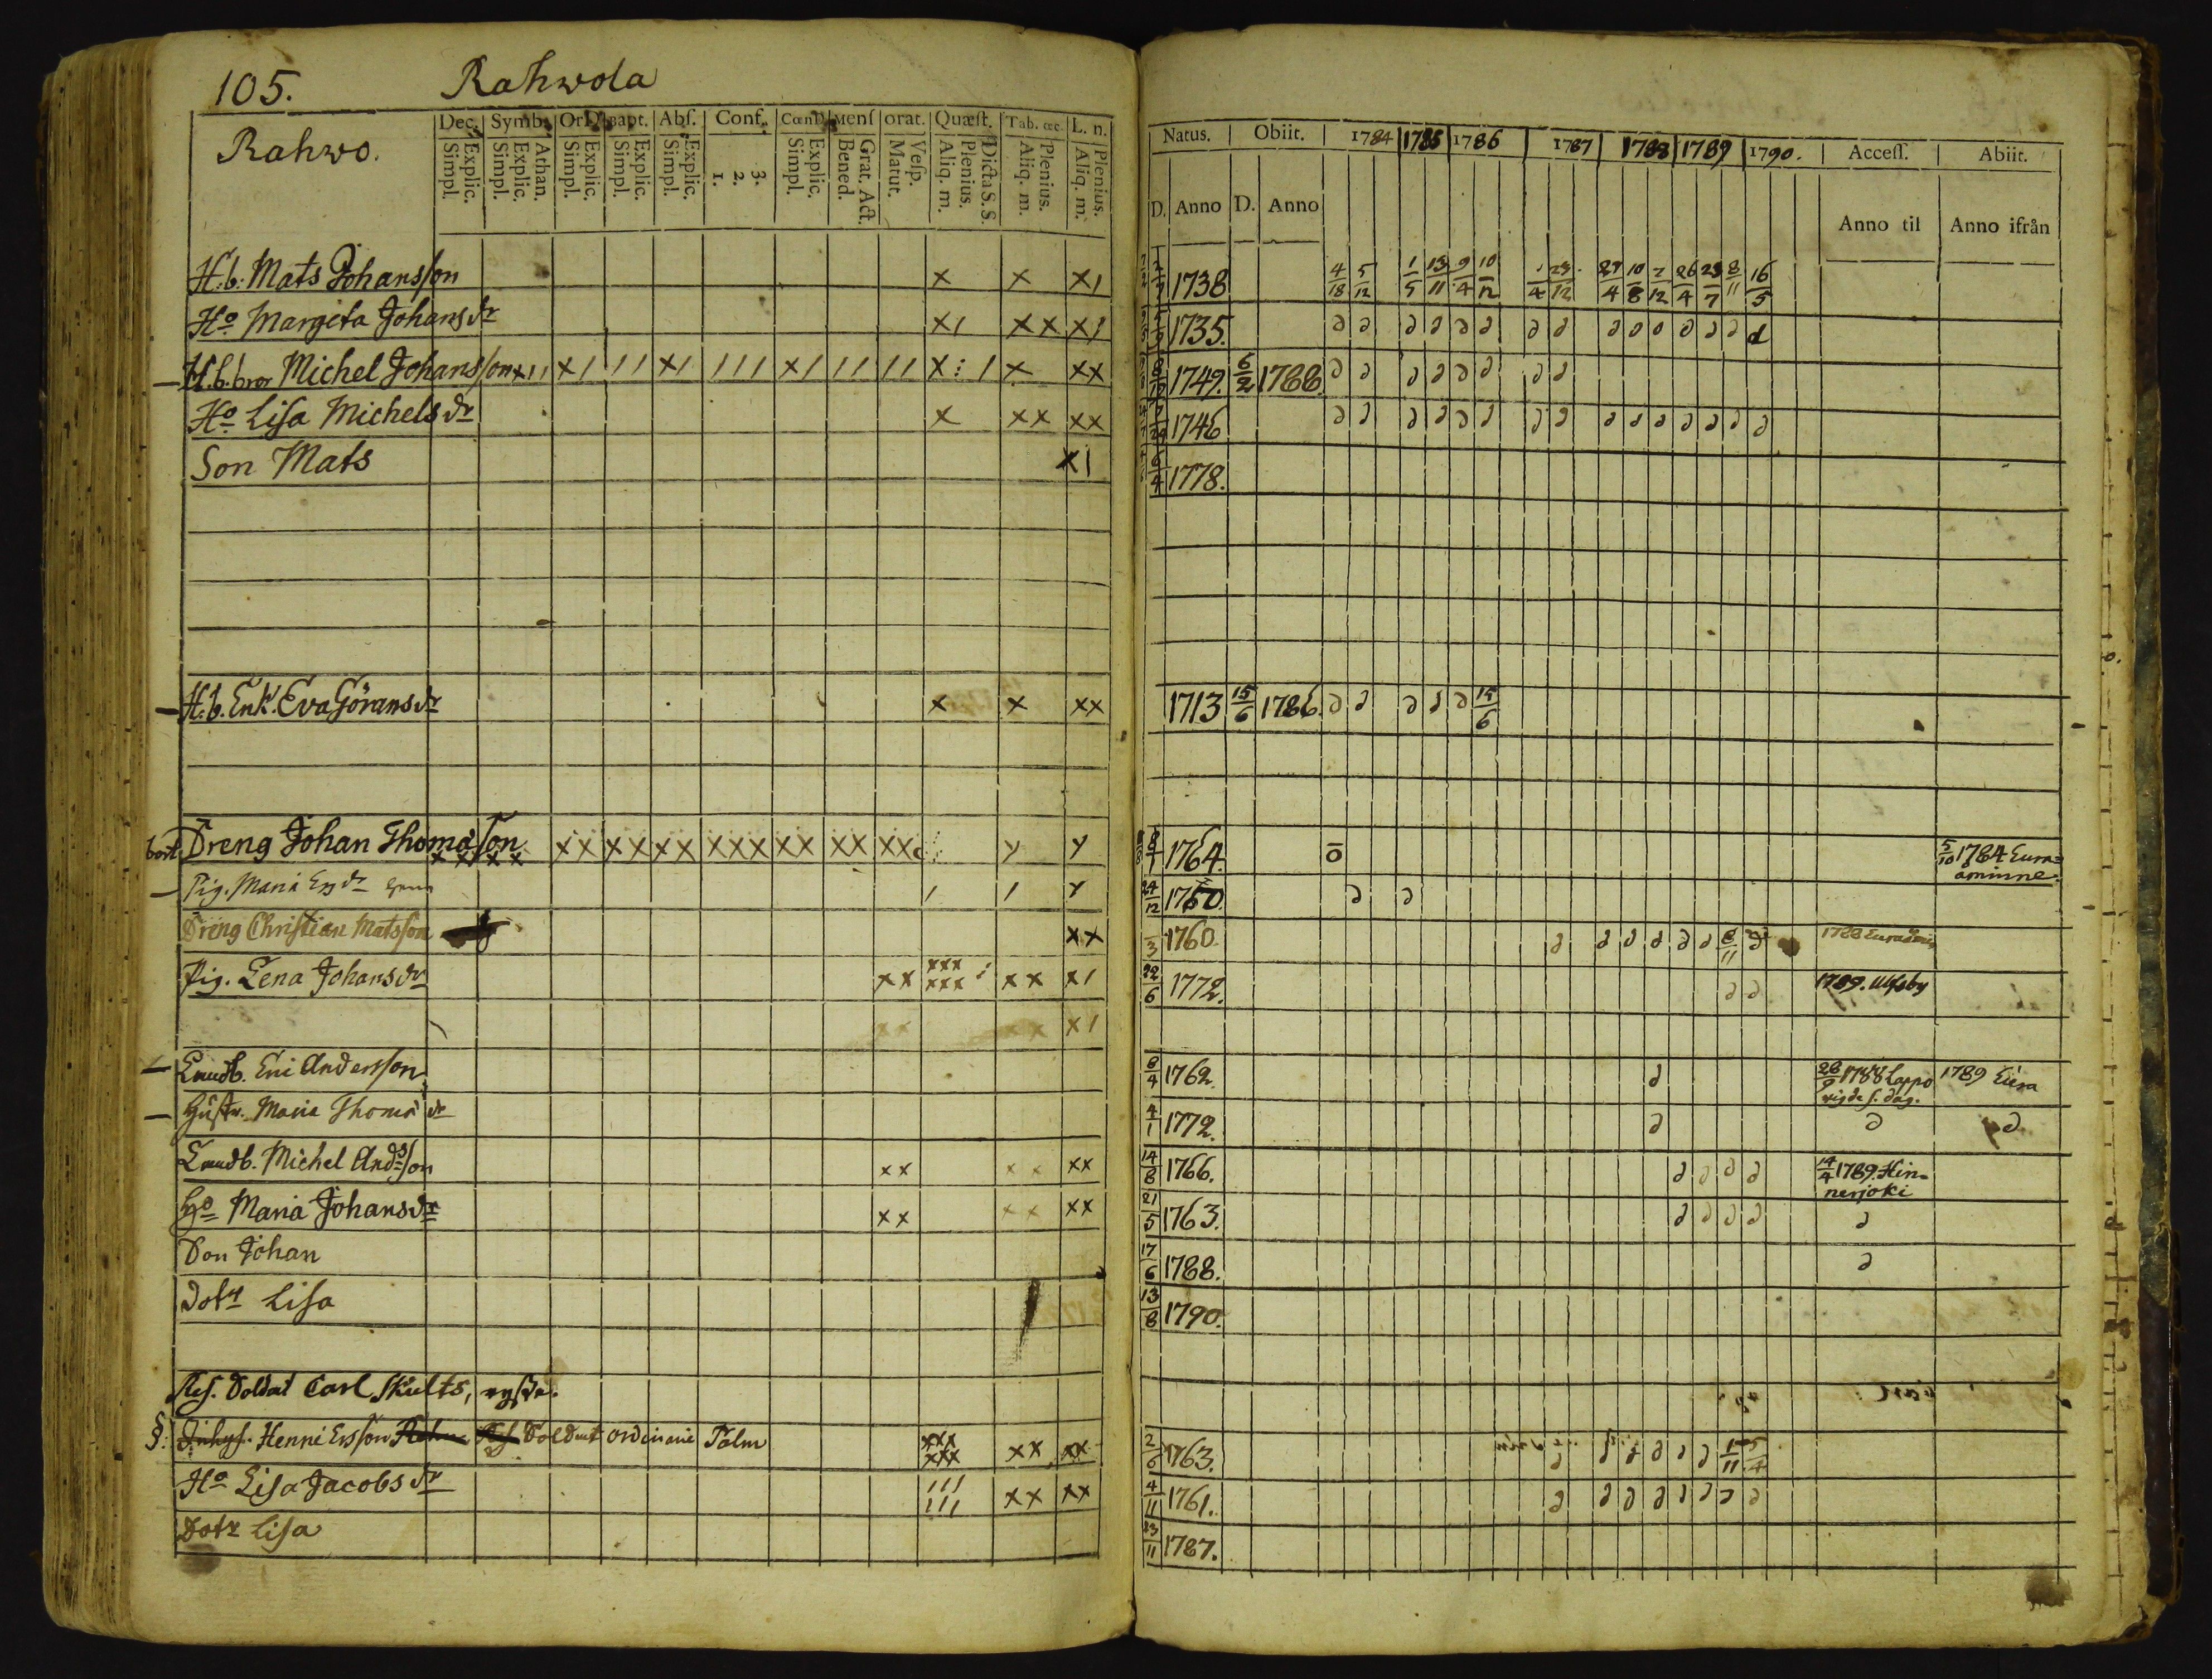 105. Rahwola
Rahwo.
Dec. Symb. Or.D. Bapt. Abſ. Conf. Cœn.D. Menſ orat. Quæſt. Tab. œc. L. n.
Explic. Simpl. Athan. Explic. Simpl. Explic. Simpl. Explic. Simpl. Explic. Simpl. 1. 2. 3. Explic. Simpl. Grat. Act. Bened. Veſp. Matut. Dicta S. S. Plenius. Aliq. m. Plenius. Aliq. m. Plenius. Aliq. m.
Natus. Obiit. 1784 1785 1786 1787 1788 1789 1790. Acceſſ. Abiit.
D. Anno D. Anno Anno til Anno ifrån
H.b. Mats Johansſon x x x1 1738 4/18 5/12 1/5 13/11 9/4 10/12 1/4 23/12 27/4 10/8 7/12 26/4 23/7 8/11 16/5
Hº Margeta Johansdr x1 xx x1 1735.
H.b. bror Michel Johansſon 1749. 6/2 1788.
Hº Liſa Michelsdr x xx xx 1746
Son Mats x1 6/4 1778.
H.b. Enk. Eva Göransdr x x xx 1713 15/6 1786. 15/6
bort Dreng Johan Thomasſon 8/1 1764. 5/10 1784 Eura=
åminne.
Pig. Maria Ersdr 24/12 1750.
Dreng Christian Matsſon xx 1760. 8/11 1788
Pig. Lena Johansdr xx xxx xxx xx x1 22/6 1772. 1789. Ulfsby
xx xx x1
Landb. Eric Andersſon 8/4 1762. 28/9 1788 Lappo 1789 Eura
Hustr. Maria Thomædr 4/1 1772.
Landb. Michel Andsſon xx xx xx 14/8 1766. 14/4 1789. Hin=
nerjoki
Hº Maria Johansdr xx xx xx 21/5 1763.
Son Johan 17/6 1788.
Dotr Liſa 13/8 1790.
Reſ. Soldat Carl Skults,
§: Inhyſ. Henric Ersſon Soldat ordinarie Palm xxx xxx xx xx 2/6 1763.
Hº Liſa Jacobsdr xx xx 4/11 1761.
Dotr Liſa 23/11 1787.